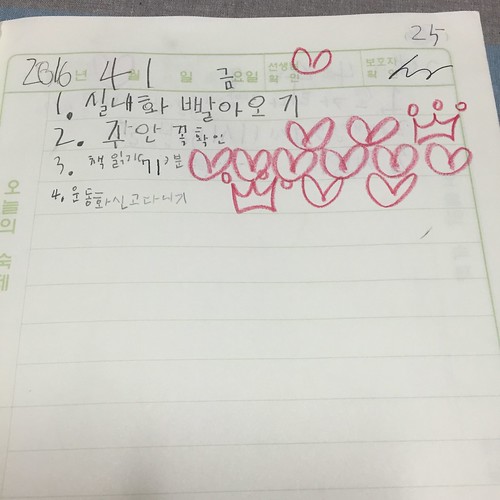 25
2016년 4월 1일 금요일 선생님 확인 보호자 확인
1. 실내화 빨아오기
2. 주안 꼭 확인
3. 책 읽기(71)분
4. 운동화신고다니기
오늘의 숙제